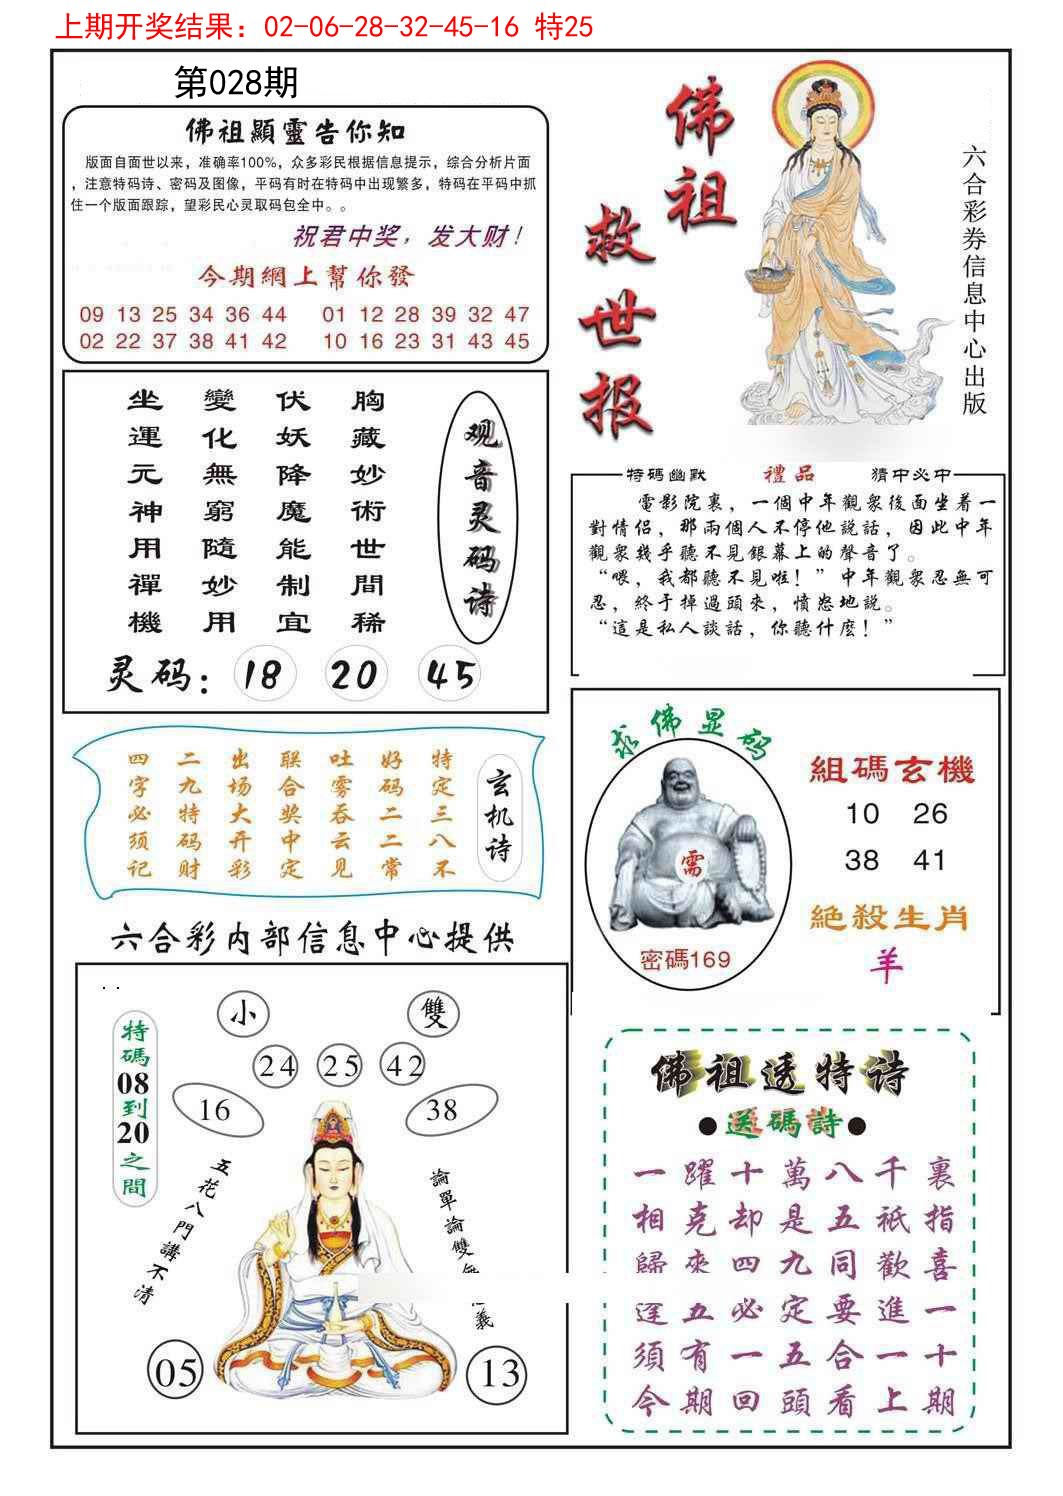 上期开奖结果：02-06-28-32-45-16 特25
第028期
佛祖顯靈告你知
版面自面世以来，准确率100%，众多彩民根据信息提示，综合分析片面
，注意特码诗、密码及图像，平码有时在特码中出现繁多，特码在平码中抓
住一个版面跟踪，望彩民心灵取码包全中。。
祝君中奖，发大财！
今期網上幫你發
09 13 25 34 36 44 01 12 28 39 32 47
02 22 37 38 41 42 10 16 23 31 43 45
佛祖
救世报
六合彩券信息中心出版
胸藏妙術世間稀
伏妖降魔能制宜
變化無窮隨妙用
坐運元神用禪機
观音灵码诗
灵码： 18 20 45
特碼幽默 禮品 猜中必中
電影院裏，一個中年觀衆後面坐着一
對情侣，那兩個人不停他説話，因此中年
觀衆幾乎聽不見銀幕上的聲音了。
“喂，我都聽不見啦！”中年觀衆忍無可
忍，終于掉過頭來，憤怒地説。
“這是私人談話，你聽什麽！”
玄机诗
特定三八不
好码二二常
吐雾吞云见
联合奖中定
出场大开彩
二九特码财
四字必须记
求佛显码
需
密碼169
組碼玄機
10 26
38 41
絶殺生肖
羊
六合彩内部信息中心提供
小 雙
24 25 42
16 38
特碼08到20之間
五花八門講不清
論單論雙
義
05 13
佛祖透特诗
●送碼詩●
一躍十萬八千裏
相克却是五祇指
歸來四九同歡喜
逢五必定要進一
須有一五合一十
今期回頭看上期